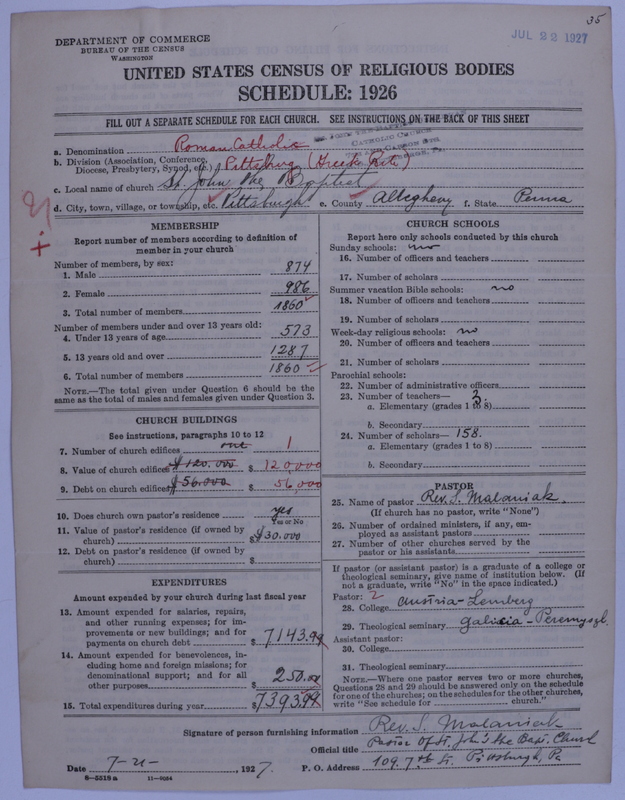 35
JUL 22 1927
DEPARTMENT OF COMMERCE
BUREAU OF THE CENSUS
WASHINGTON
UNITED STATES CENSUS OF RELIGIOUS BODIES
SCHEDULE: 1926
FILL OUT A SEPARATE SCHEDULE FOR EACH CHURCH. SEE INSTRUCTIONS ON THE BACK OF THIS SHEET
CATHOLIC CHURCH
a. Denomination Roman Catholic
b. Division (Association, Conference, Diocese, Presbytery, Synod, etc.) Pittsburg (Greek Rite)
c. Local name of church St. John the Baptist
d. City, town, village, or township, etc. Pittsburgh e. County Allegheny f. State Penna
MEMBERSHIP
Report number of members according to definition of member in your church
Number of members, by sex:
1. Male 874
2. Female 986
3. Total number of members 1860
Number of members under and over 13 years old:
4. Under 13 years of age 573
5. 13 years old and over 1287
6. Total number of members 1860
NOTE.—The total given under Question 6 should be the same as the total of males and females given under Question 3.
CHURCH BUILDINGS
See instructions, paragraphs 10 to 12
7. Number of church edifices one 1
8. Value of church edifices $120.000 $ 120,000
9. Debt on church edifices $56.000 $ 56,000
10. Does church own pastor's residence yes
Yes or No
11. Value of pastor's residence (if owned by church) $30.000
12. Debt on pastor's residence (if owned by church) $
EXPENDITURES
Amount expended by your church during last fiscal year
13. Amount expended for salaries, repairs, and other running expenses; for improvements or new buildings; and for payments on church debt $7143.94
14. Amount expended for benevolences, including home and foreign missions; for denominational support; and for all other purposes 250.00
15. Total expenditures during year $7393.94
CHURCH SCHOOLS
Report here only schools conducted by this church
Sunday schools: no
16. Number of officers and teachers
17. Number of scholars
Summer vacation Bible schools: no
18. Number of officers and teachers
19. Number of scholars
Week-day religious schools: no
20. Number of officers and teachers
21. Number of scholars
Parochial schools:
22. Number of administrative officers
23. Number of teachers— 3
a. Elementary (grades 1 to 8)
b. Secondary
24. Number of scholars— 158.
a. Elementary (grades 1 to 8)
b. Secondary
PASTOR
25. Name of pastor Rev. S. Malaniak.
(If church has no pastor, write "None")
26. Number of ordained ministers, if any, employed as assistant pastors
27. Number of other churches served by the pastor or his assistants
If pastor (or assistant pastor) is a graduate of a college or theological seminary, give name of institution below. (If not a graduate, write "No" in the space indicated.)
Pastor: 2
28. College Austria-Lemberg
29. Theological seminary Galicia-Peremyszl.
Assistant pastor:
30. College
31. Theological seminary
NOTE.—Where one pastor serves two or more churches, Questions 28 and 29 should be answered only on the schedule for one of the churches; on the schedules for the other churches, write "See schedule for church."
Signature of person furnishing information Rev. S. Malaniak
Official title Pastor of St. John's the Bapt. Church
Date 7-21- , 1927. P. O. Address 109. 7th St. Pittsburgh, Pa
8-5319a 11-9034